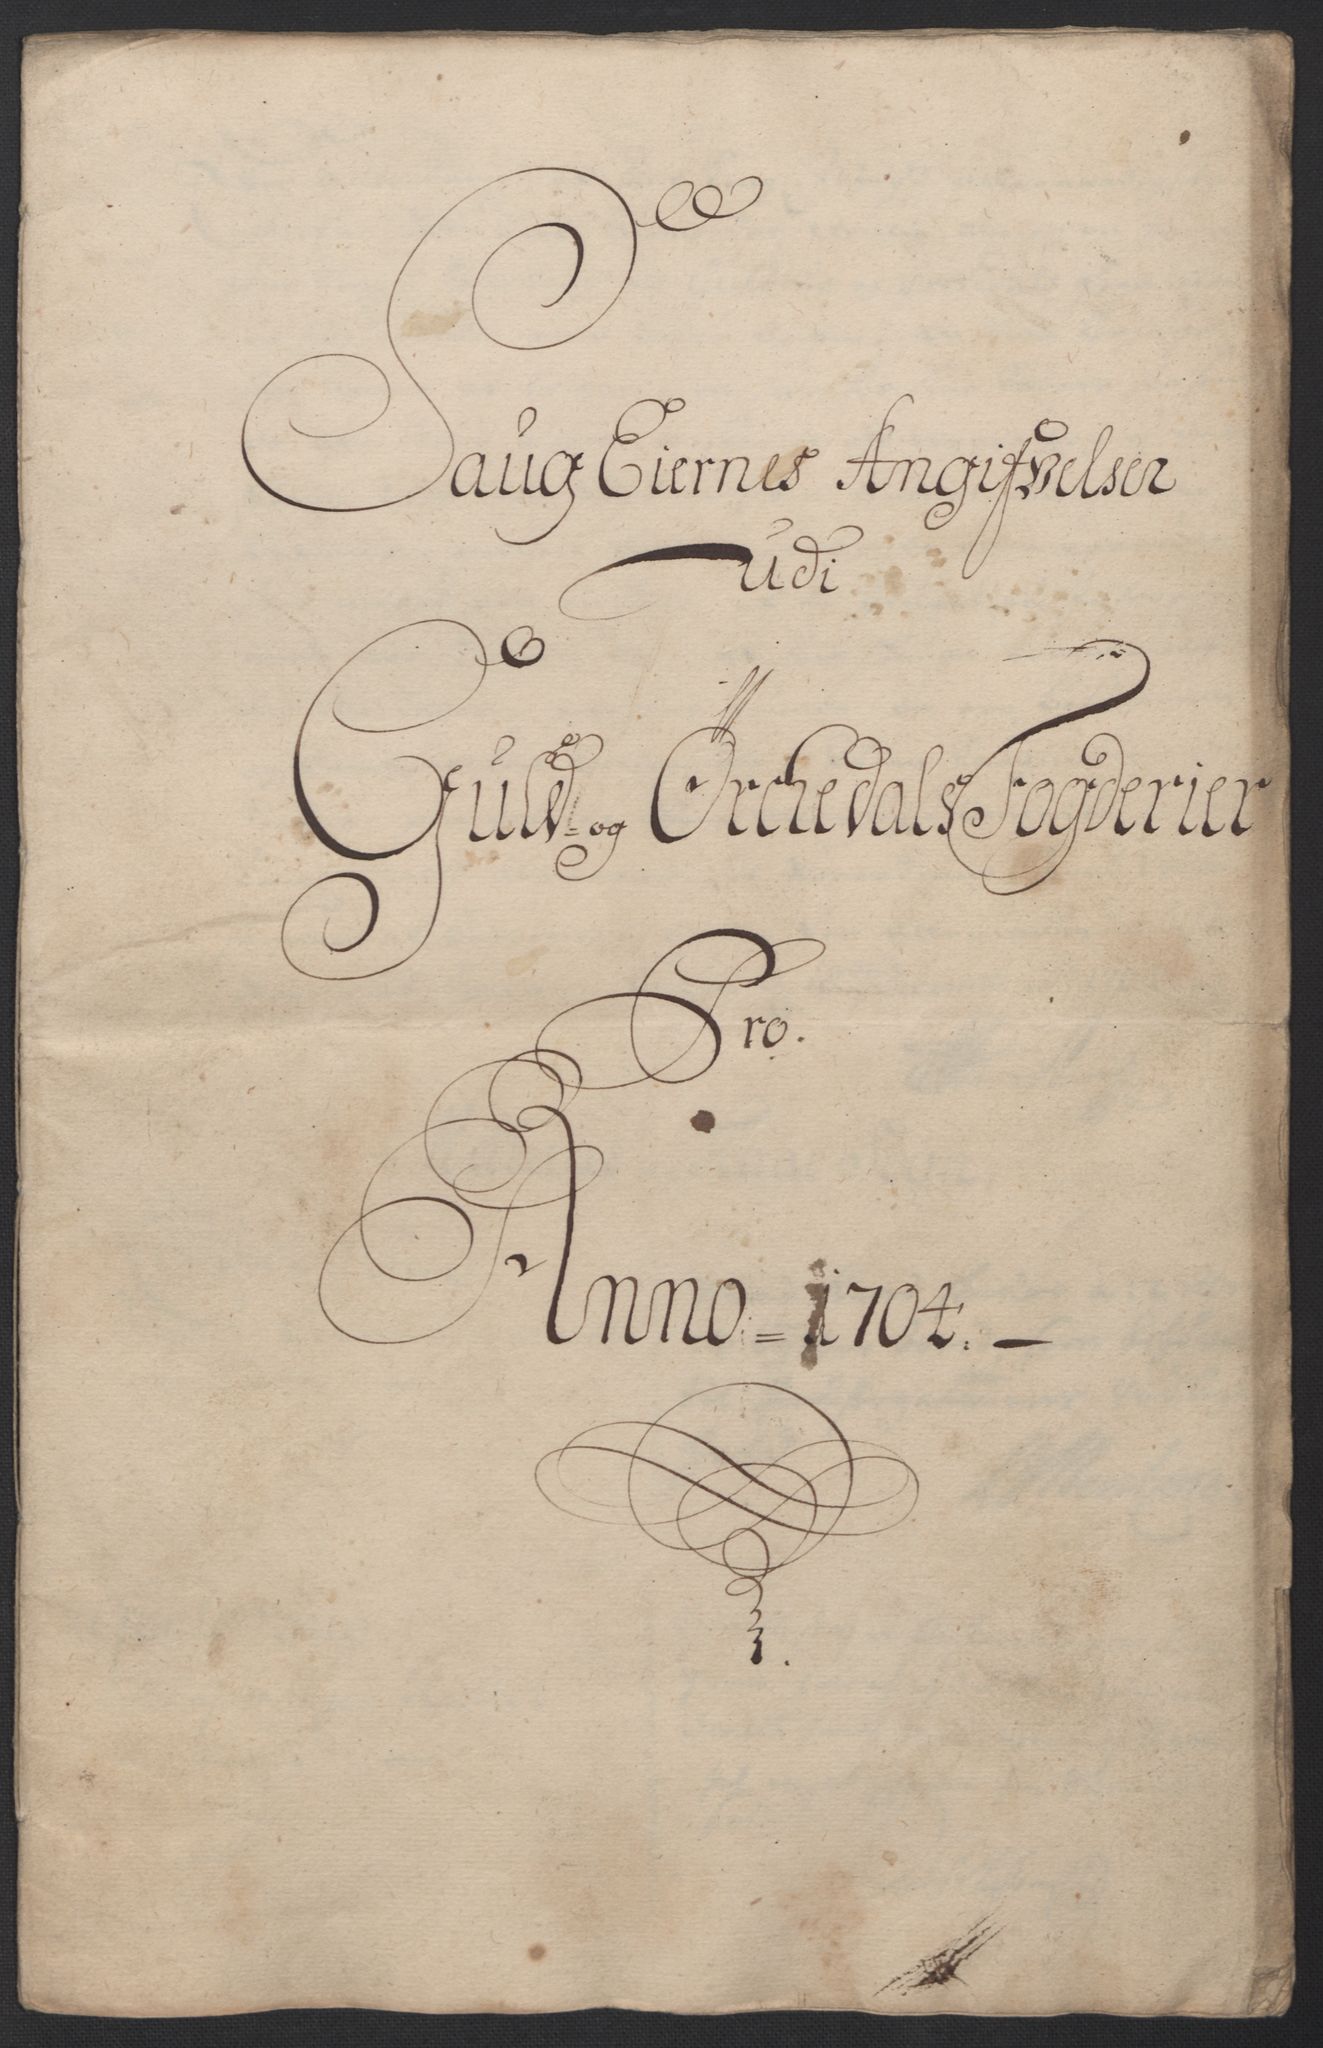 Saug Eiernes Angifvelser
udi
Guld- og Ørchedals Fogderier
Pro.
Anno = 1704. —